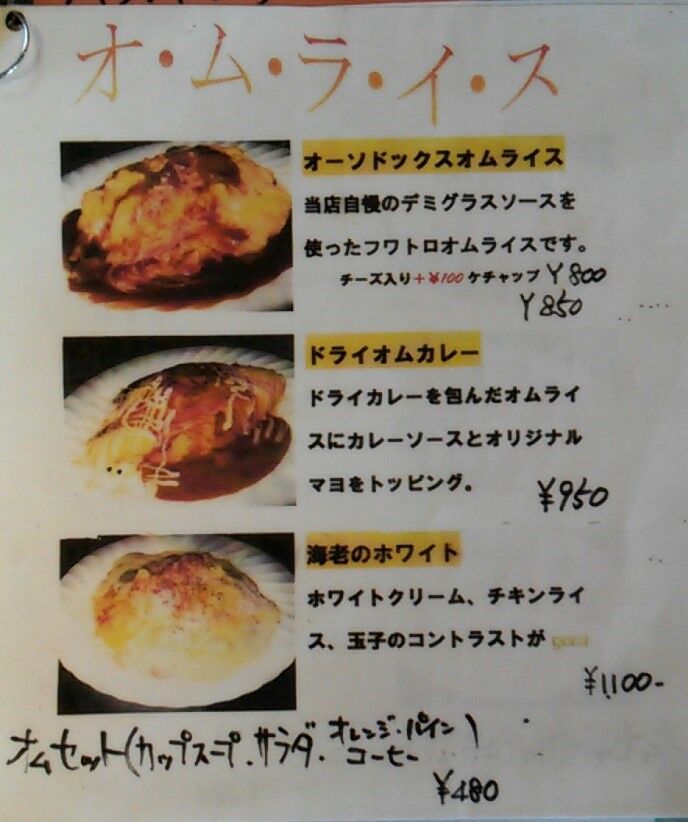 オ・ム・ラ・イ・ス
オーソドックスオムライス
当店自慢のデミグラスソースを
使ったフワトロオムライスです。
チーズ入り＋¥100 ケチャップ ¥800
¥850
ドライオムカレー
ドライカレーを包んだオムライ
スにカレーソースとオリジナル
マヨをトッピング。
¥950
海老のホワイト
ホワイトクリーム、チキンライ
ス、玉子のコントラストが
¥1,100-
オムセット(カップスープ.サラダ.オレンジ・パイン)
コーヒー
¥480